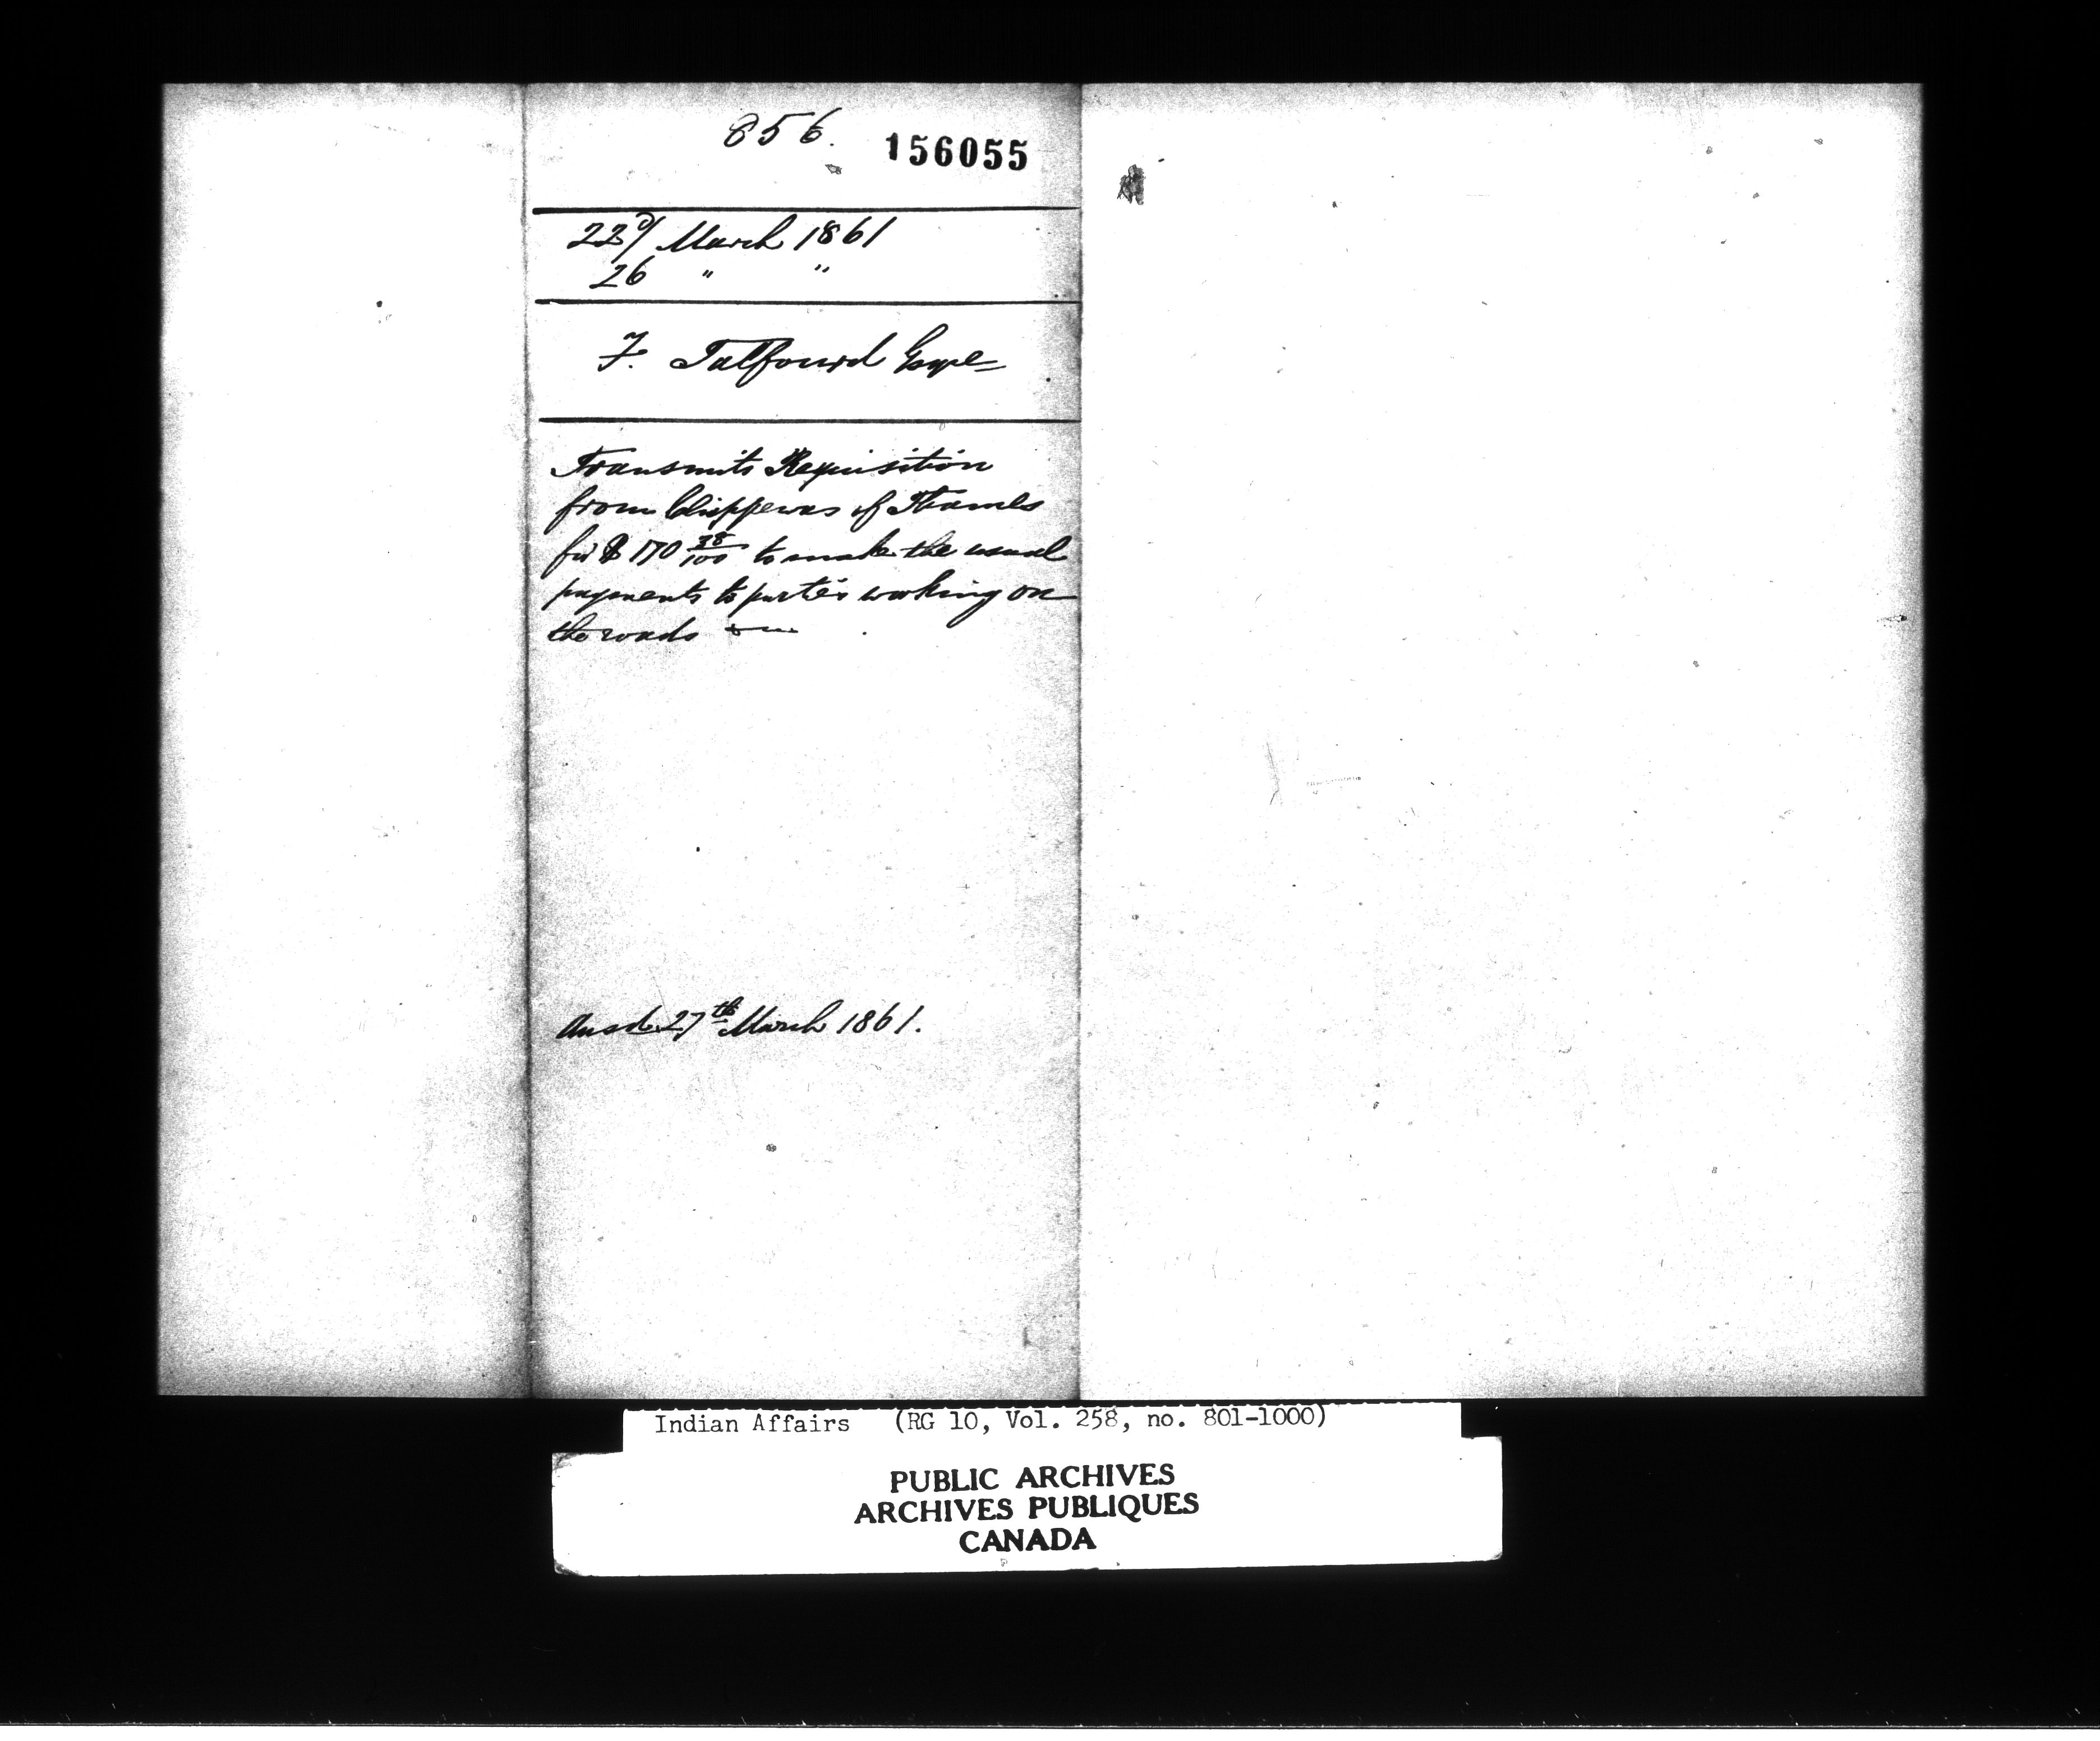 856.
156055
22d/ March 1861
26 " "
F. Talfourd Esqre
Transmits Requisition
from Chippewas of Thames
for $ 170 38/100 to make the usual
payments to parties working on
the roads
Ansd. 27th March 1861.
Indian Affairs (RG 10, Vol. 258, no. 801-1000)
PUBLIC ARCHIVES
ARCHIVES PUBLIQUES
CANADA